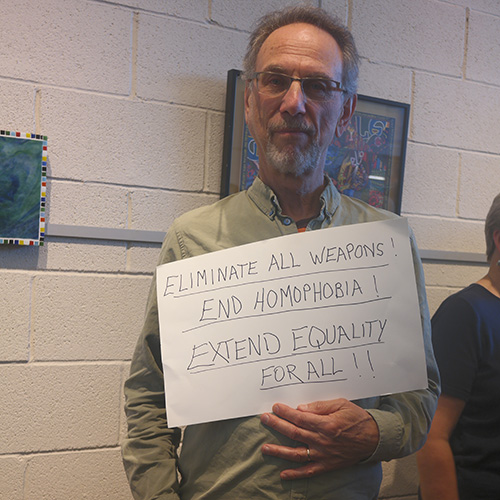 ELIMINATE ALL WEAPONS!
END HOMOPHOBIA!
EXTEND EQUALITY
FOR ALL!!